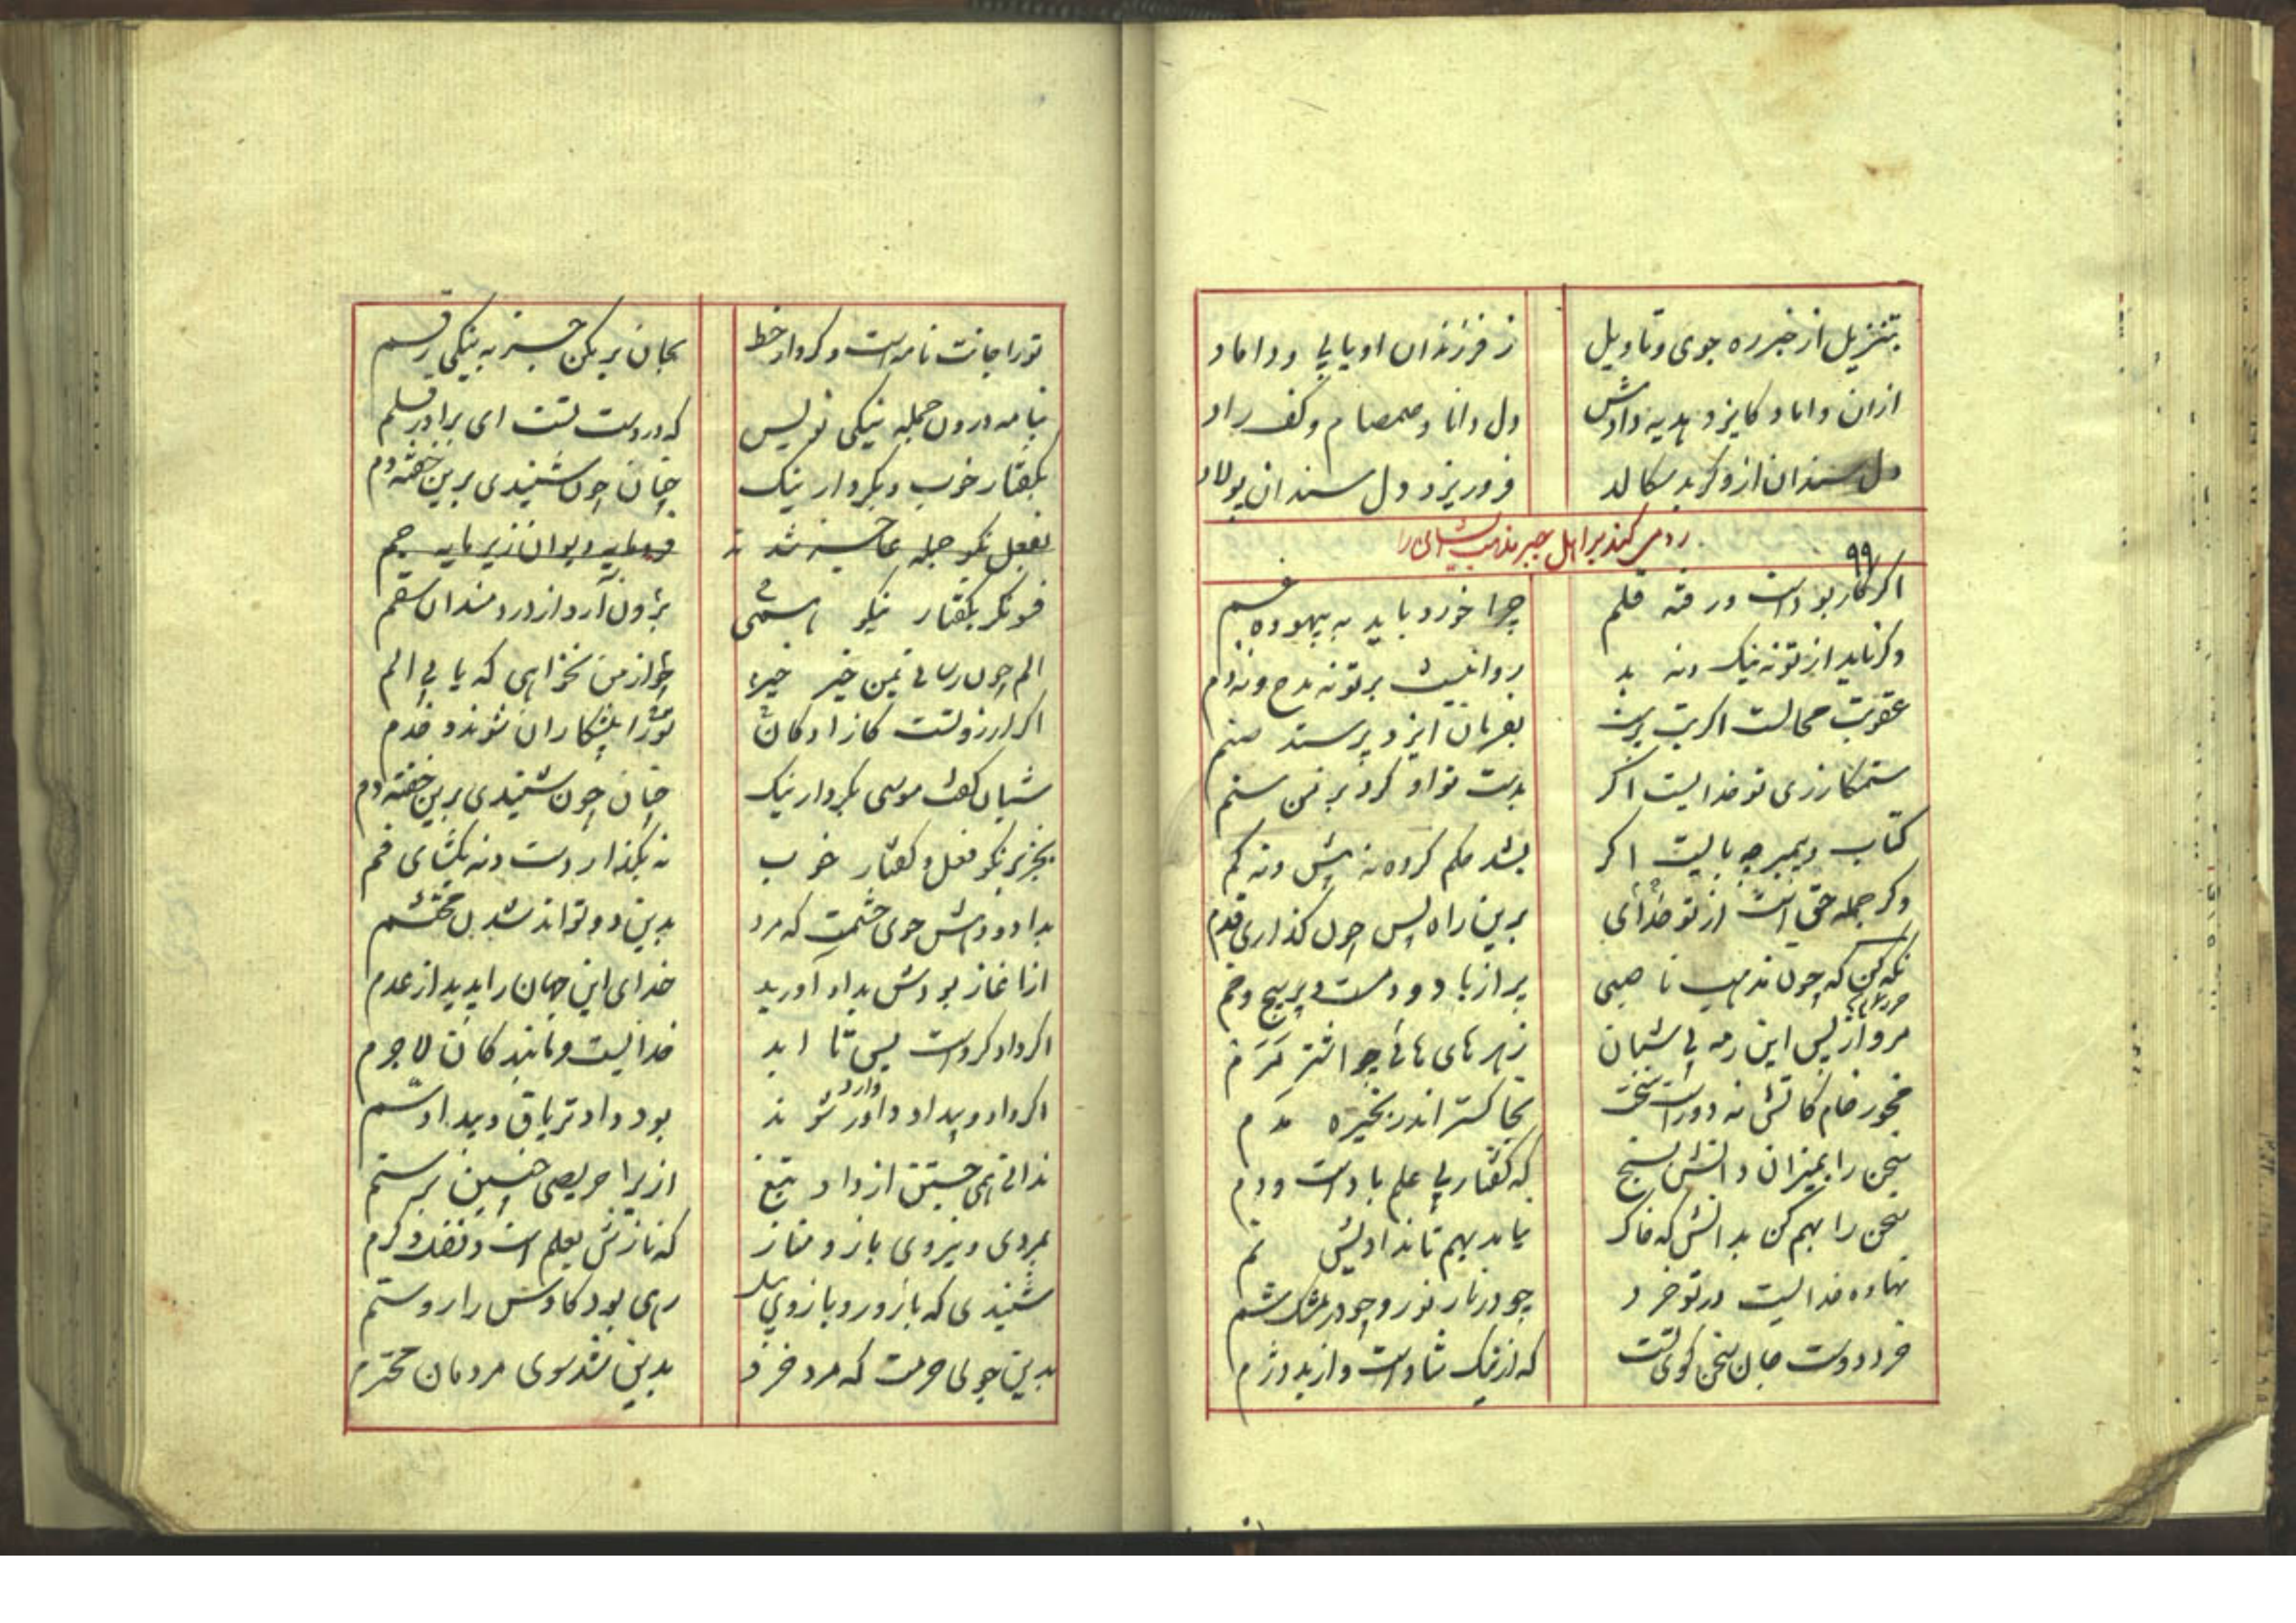 بتنزیل از خبر ره جوی و تاویل
ز فرزندان او یابی و داماد
ازان داماد کایزد هدیه دادش
دل دانا و صمصام و کف راد
دل سندان ازو گر بد سکالد
فرو ریزد دل سندان پولاد
رد می کند بر اهل جبر مذهب ایشان را
۹۹
اگر کار بوداست و رفته قلم
چرا خورد باید به بیهوده غم
وگر ناید از تو نه نیک و نه بد
روا نیست بر تو نه مدح و نه ذم
عقوبت محالست اگر بت پرست
بفرمان ایزد پرستد صنم
ستمکار زی تو خدایست اگر
بدست تو او کرد بر من ستم
کتاب و پیمبر چه بایست اگر
نشد حکم کرده نه بیش و نه کم
وگر جمله حق است از تو خدای
برین راه پس چون گذاری قدم
نگه کن که چون مذهب ناصبی
پر از باد و دمست و پر پیچ و خم
مرو از پس این رمه بی شبان
ز هر های هائی چو اشتر مرم
مخور خام کاتش نه دور است سخت
بخاکستر اندر بخیره مدم
سخن را بمیزان دانش بسنج
که گفتار بی علم باد است و دم
سخن را بهم کن بدانش که خاک
نیاید بهم تا نداد یش نم
نهاده خدایست در تو خرد
چو در نار نور و چو در مشک شم
خرد دوست جان سخن گوی تست
که از نیک شاد است و از بد دژم
تو را جانت نامه است و کردار خط
بجان بر مکن جز به نیکی رقم
بنامه درون جمله نیکی نویس
که در دست تست ای برادر قلم
بگفتار خوب و بکردار نیک
چنان چون شنیدی برین خفته دم
بفعل نکو جمله عاجز شدند
فرومایه دیوان ز پرمایه جم
فسونگر بگفتار نیکو همی
برون آرد از دردمندان سقم
الم چون رسانی بمن خیر خیر
چو از من نخواهی که یابی الم
اگر آرزو تست کازادگان
تو را پیشکاران شوند و خدم
شبان گشت موسی بکردار نیک
چنان چون شنیدی برین خفته دم
بجز بر نکو فعل و گفتار خوب
نه بگذار دست و نه بگشای فم
بداد و دهش جوی حشمت که مرد
بدین دو تواند شدن محتشم
از آغاز بودش بداد آورید
خدای این جهان را پدید از عدم
اگر داد کرد است پس تا ابد
خدایست و مانند کان لاجرم
اگر داد و بیداد داور شوند
دارو
بود داد تریاق و بیداد سم
ندانی همی جستن از داد نفع
ازیرا حریصی چنین بر ستم
بمردی و نیروی بازو مناز
که نازش بعلم است و فضل و کرم
شنیدی که با زور و بازوی پیل
رهی بود کاوس را روستم
بدین جوی حرمت که مرد خرد
بدین شد سوی مردمان محترم